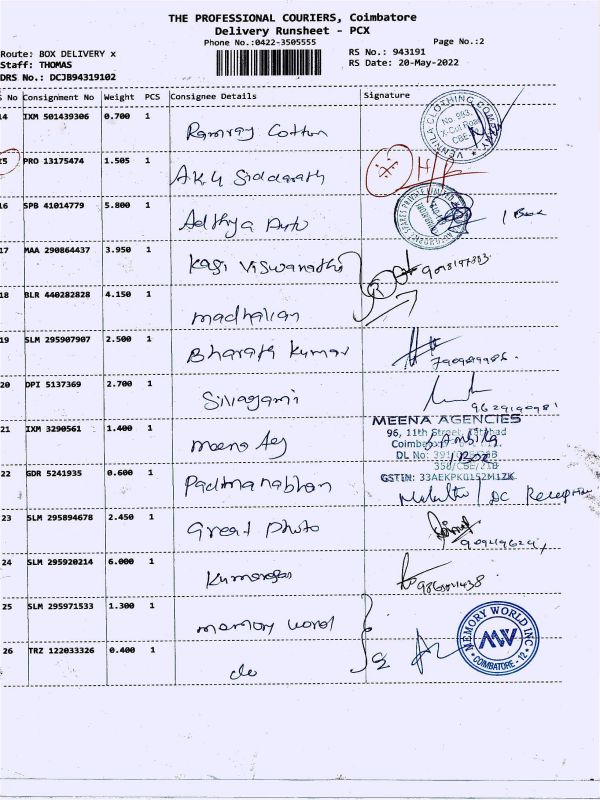 THE PROFESSIONAL COURIERS, Coimbatore
Delivery Runsheet - PCX
Phone No.:0422-3505555
Page No.:2
Route: BOX DELIVERY x
RS No.: 943191
Staff: THOMAS
RS Date: 20-May-2022
DRS No.: DCJB94319102
S No Consignment No Weight PCS Consignee Details Signature
14 IXM 501439306 0.700 1 Ramraj Cotton
VENNILA CLOTHING COMPANY No. 993, X-Cut Road
15 PRO 13175474 1.505 1 A.K.G Siddarath
16 SPB 41014779 5.800 1 Adthya Auto 1 Box
17 MAA 290864437 3.950 1 Kasi Viswanathi
18 BLR 440282828 4.150 1 madhalian
19 SLM 295907907 2.500 1 Bharath Kumar
20 DPI 5137369 2.700 1 Sivagami
9629190981
21 IXM 3290561 1.400 1 meena Agy
MEENA AGENCIES
96, 11th Street,
GSTIN: 33AEKPK0152M1ZK
22 GDR 5241935 0.600 1 Padmanabhan / DC Reception
23 SLM 295894678 2.450 1 Great Photo
24 SLM 295920214 6.000 1 Kumaragan
25 SLM 295971533 1.300 1 memory world
26 TRZ 122033326 0.400 1 do
2
MEMORY WORLD INC MW COIMBATORE - 12